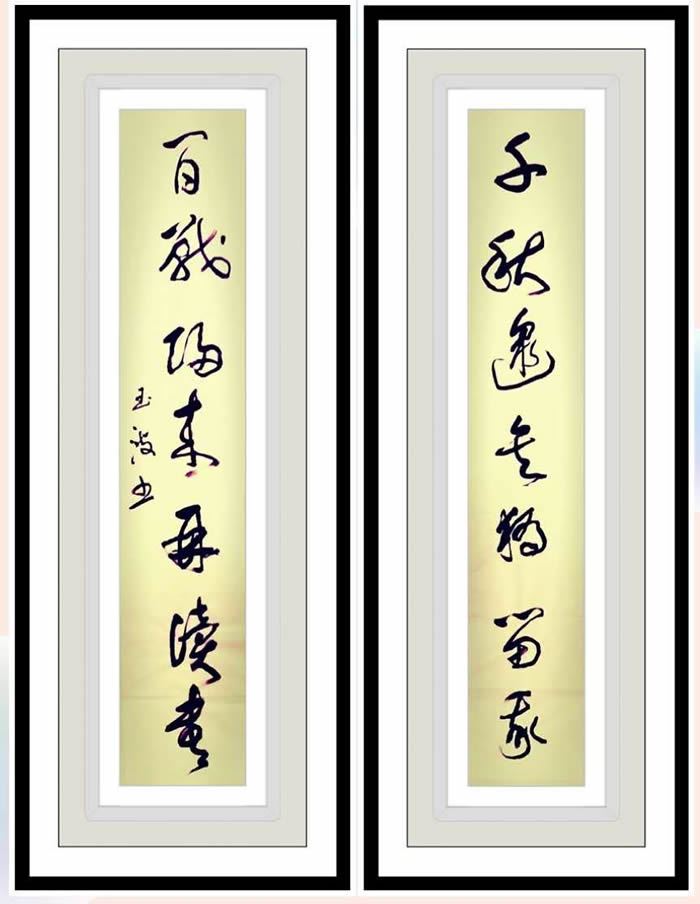 千秋邈矣獨留我
百戰歸來再讀書
玉波书